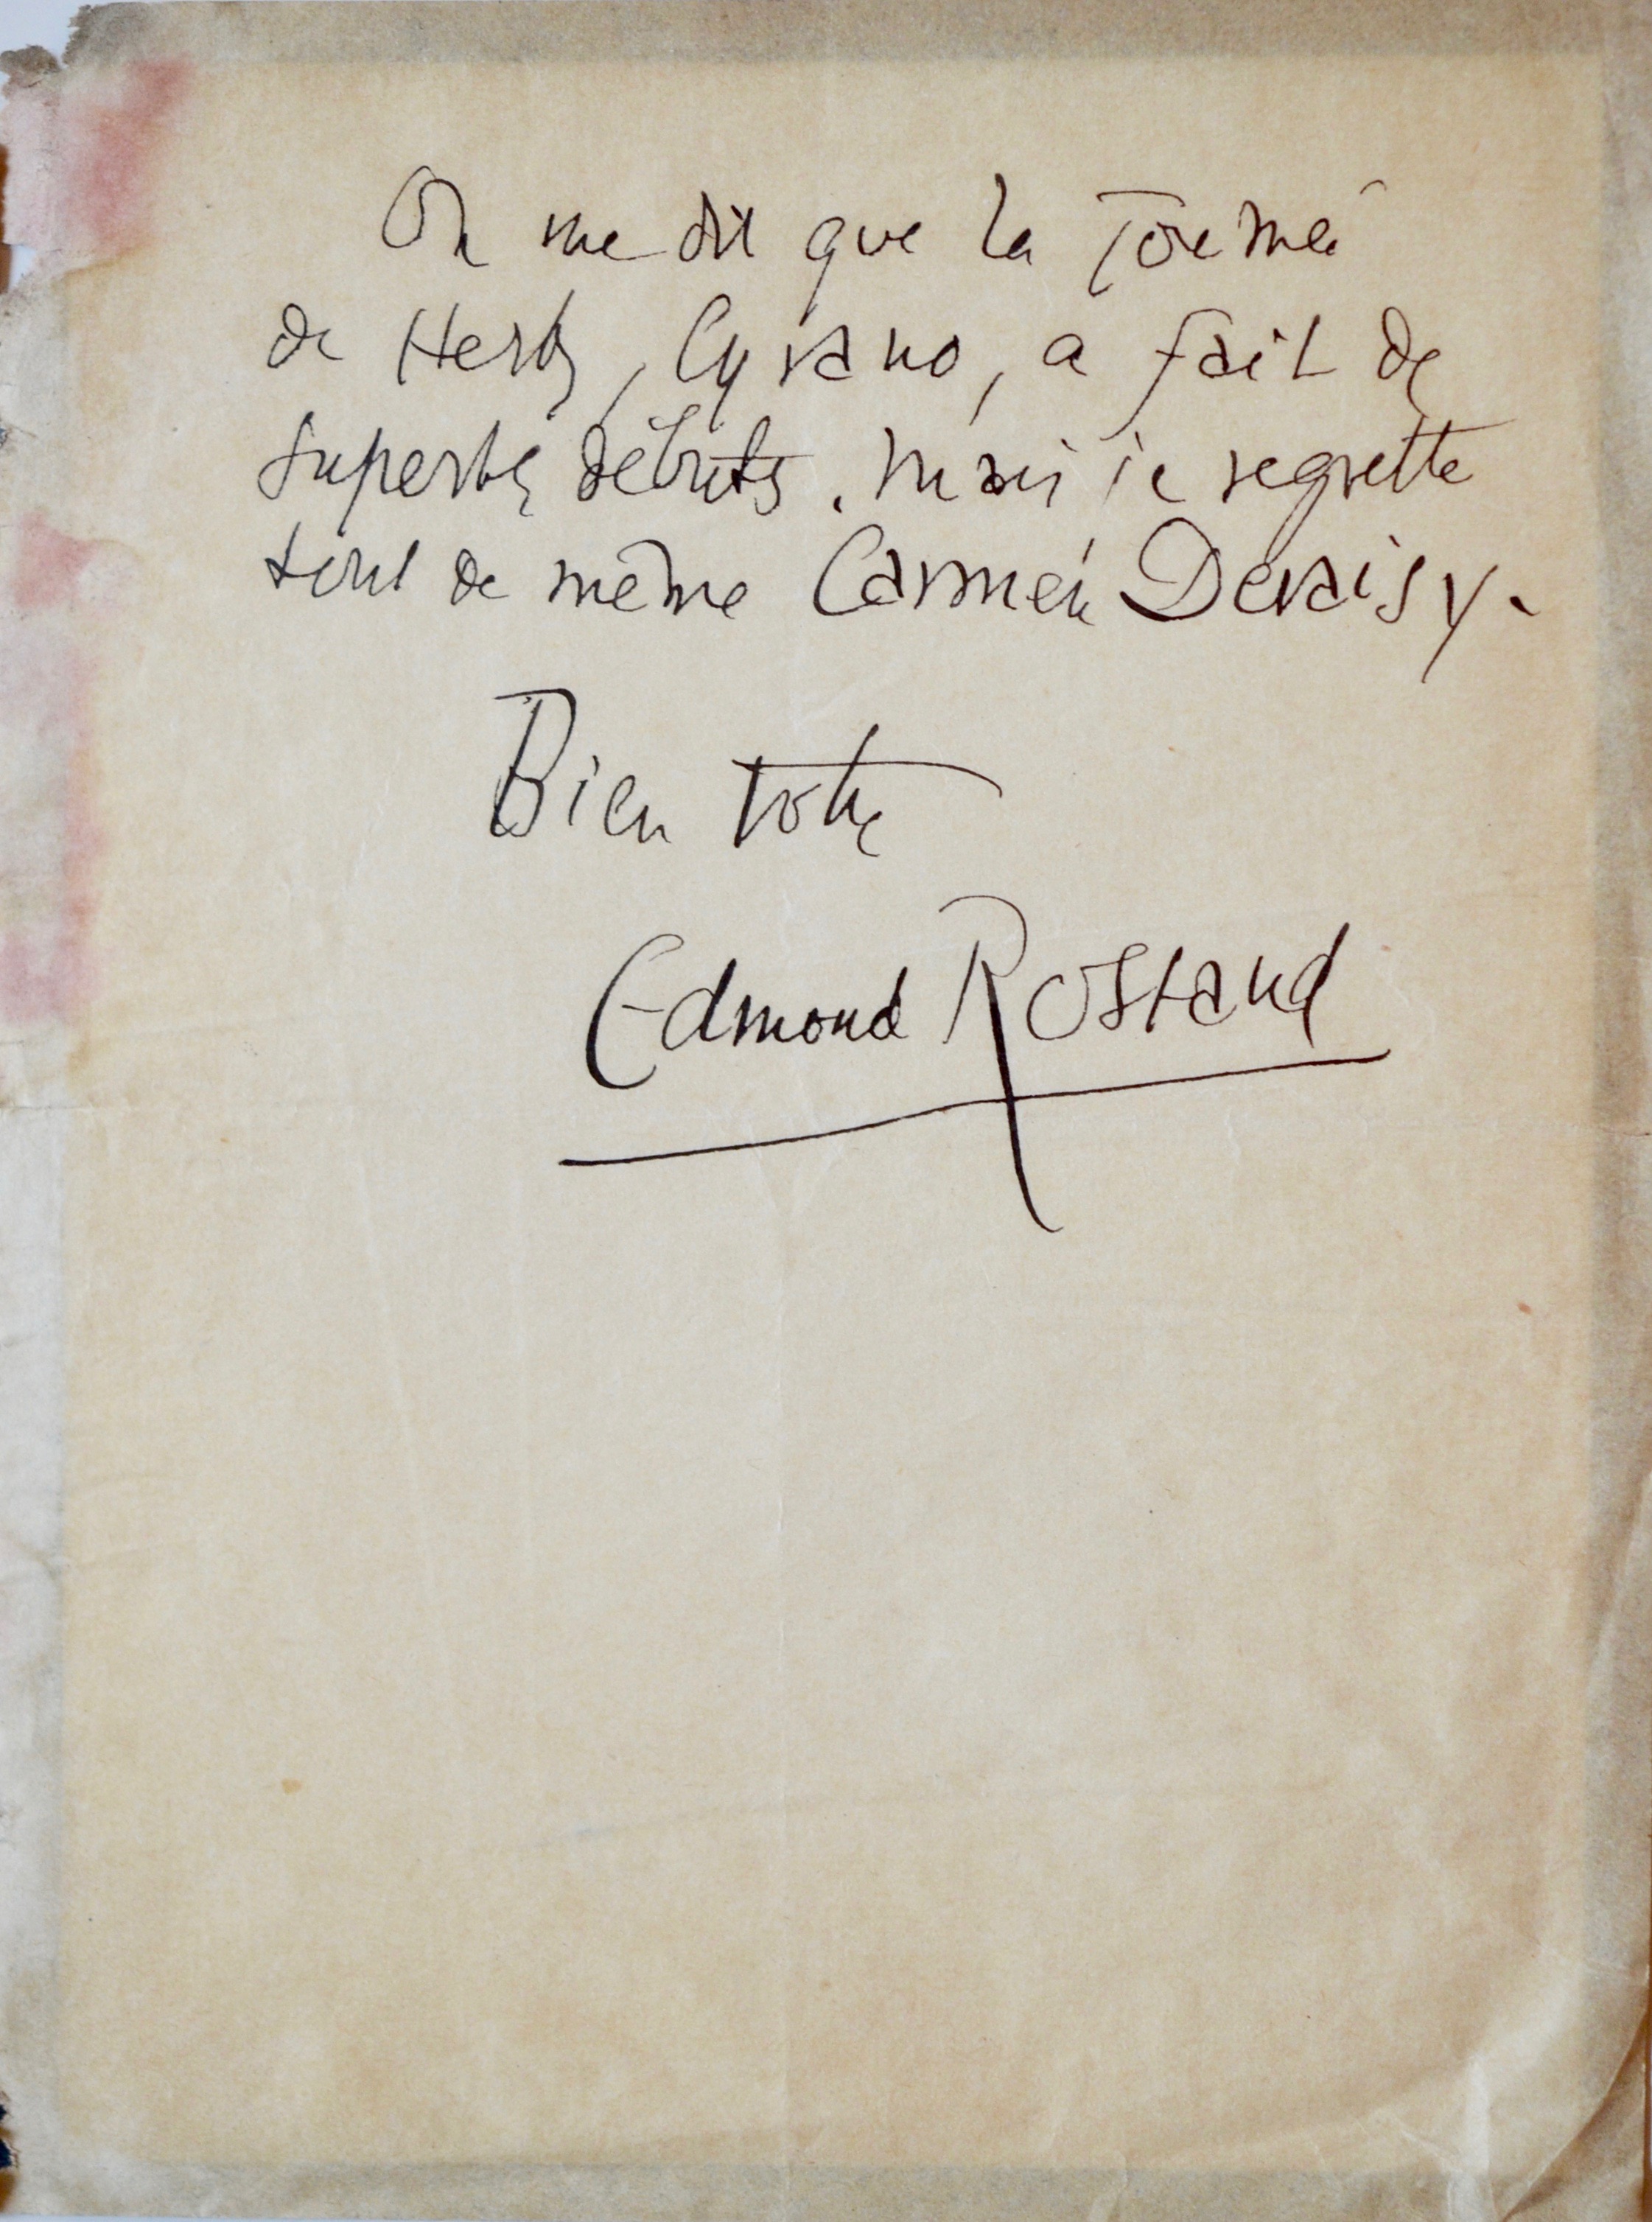 On me dit que la Tournée
de Hertz, Cyrano, a fait de
superbes débuts. Mais je regrette
tout de même Carmen Deraisy.
Bien votre
Edmond Rostand